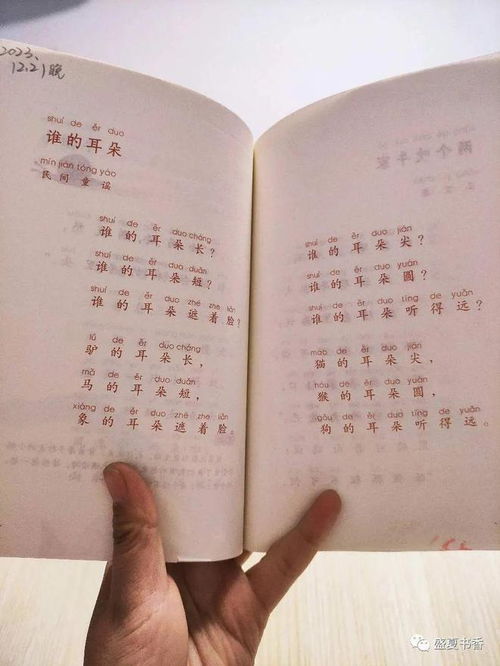 2023、
12.21晚
shuí de ěr duo
谁的耳朵
mín jiān tóng yáo
民间童谣
shuí de ěr duo cháng
谁的耳朵长？
shuí de ěr duo duǎn
谁的耳朵短？
shuí de ěr duo zhē zhe liǎn
谁的耳朵遮着脸？
lǘ de ěr duo cháng
驴的耳朵长，
mǎ de ěr duo duǎn
马的耳朵短，
xiàng de ěr duo zhē zhe liǎn
象的耳朵遮着脸。
shuí de ěr duo jiān
谁的耳朵尖？
shuí de ěr duo yuán
谁的耳朵圆？
shuí de ěr duo tīng de yuǎn
谁的耳朵听得远？
māo de ěr duo jiān
猫的耳朵尖，
hóu de ěr duo yuán
猴的耳朵圆，
gǒu de ěr duo tīng de yuǎn
狗的耳朵听得远。
盛夏书香